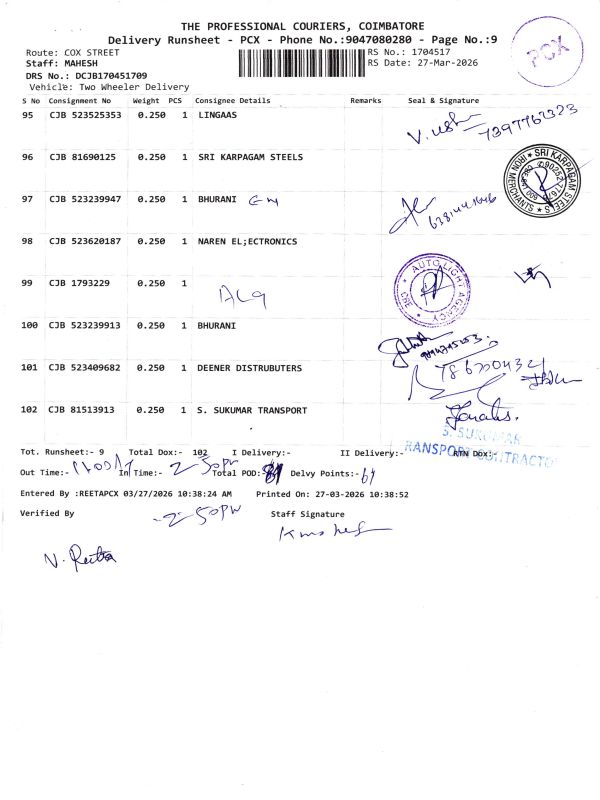 THE PROFESSIONAL COURIERS, COIMBATORE
Delivery Runsheet - PCX - Phone No.:9047080280 - Page No.:9
PCX
Route: COX STREET
RS No.: 1704517
Staff: MAHESH
RS Date: 27-Mar-2026
DRS No.: DCJB170451709
Vehicle: Two Wheeler Delivery
S No Consignment No Weight PCS Consignee Details Remarks Seal & Signature
95 CJB 523525353 0.250 1 LINGAAS
96 CJB 81690125 0.250 1 SRI KARPAGAM STEELS
SRI KARPAGAM STEELS
IRON MERCHANTS
97 CJB 523239947 0.250 1 BHURANI
98 CJB 523620187 0.250 1 NAREN EL;ECTRONICS
99 CJB 1793229 0.250 1
AUTO LIGHT AGENCY
CBE
100 CJB 523239913 0.250 1 BHURANI
101 CJB 523409682 0.250 1 DEENER DISTRUBUTERS
102 CJB 81513913 0.250 1 S. SUKUMAR TRANSPORT
S. SUKUMAR
TRANSPORT CONTRACTO
Tot. Runsheet:- 9 Total Dox:- 102 I Delivery:- II Delivery:- RTN Dox:-
Out Time:- In Time:- 2-50pm Total POD:- Delvy Points:- 64
Entered By :REETAPCX 03/27/2026 10:38:24 AM Printed On: 27-03-2026 10:38:52
Verified By 2-50pm Staff Signature
N. Reetha